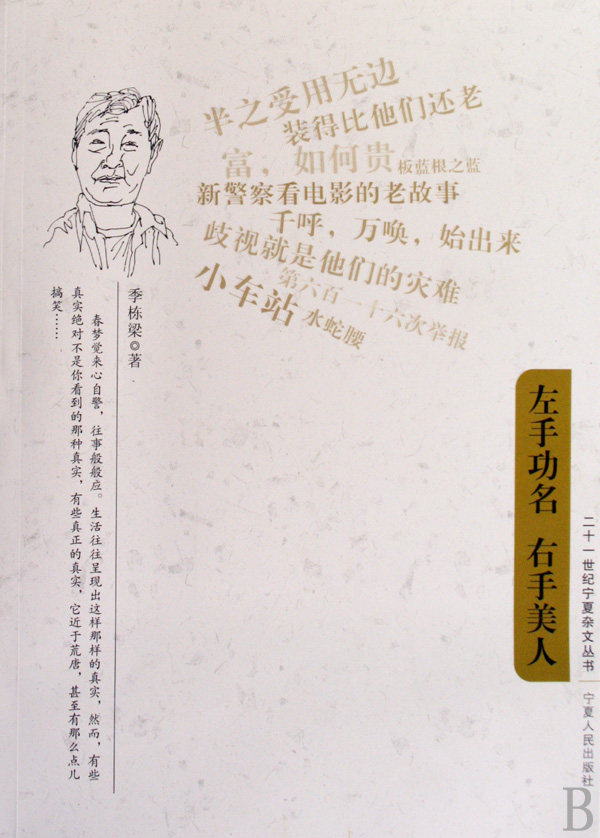 半之受用无边
装得比他们还老
富，如何贵
板蓝根之蓝
新警察看电影的老故事
千呼，万唤，始出来
歧视就是他们的灾难
第六百一十六次举报
小车站
水蛇腰
季栋梁◎著
春梦觉来心自警，往事般般应。生活往往呈现出这样那样的真实，然而，有些
真实绝对不是你看到的那种真实，有些真正的真实，它近于荒唐，甚至有那么点儿
搞笑……
左手功名 右手美人
二十一世纪宁夏杂文丛书
宁夏人民出版社
B